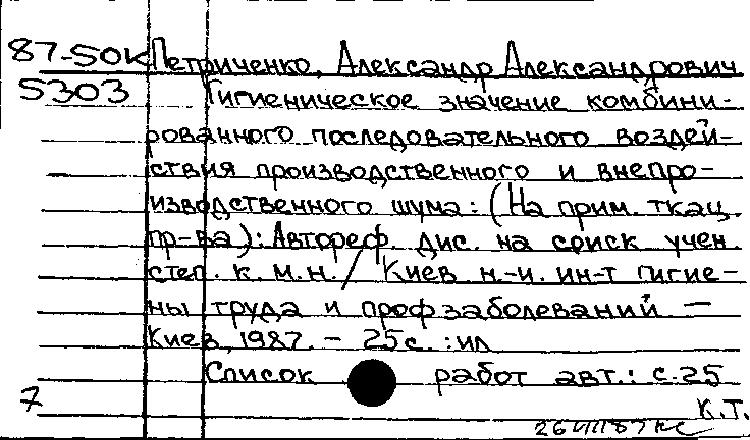 87-50К Петриченко, Александр Александрович
5303 Гигиеническое значение комбини-
рованного последовательного воздей-
ствия производственного и внепро-
изводственного шума: (На прим. ткац.
пр-ва): Автореф. дис. на соиск учен
степ. к. м. н. / Киев н.-и. ин-т гигие-
ны труда и профзаболеваний —
Киев, 1987. - 25 с. : ил
Список работ авт.: с. 25
7 К.Т.